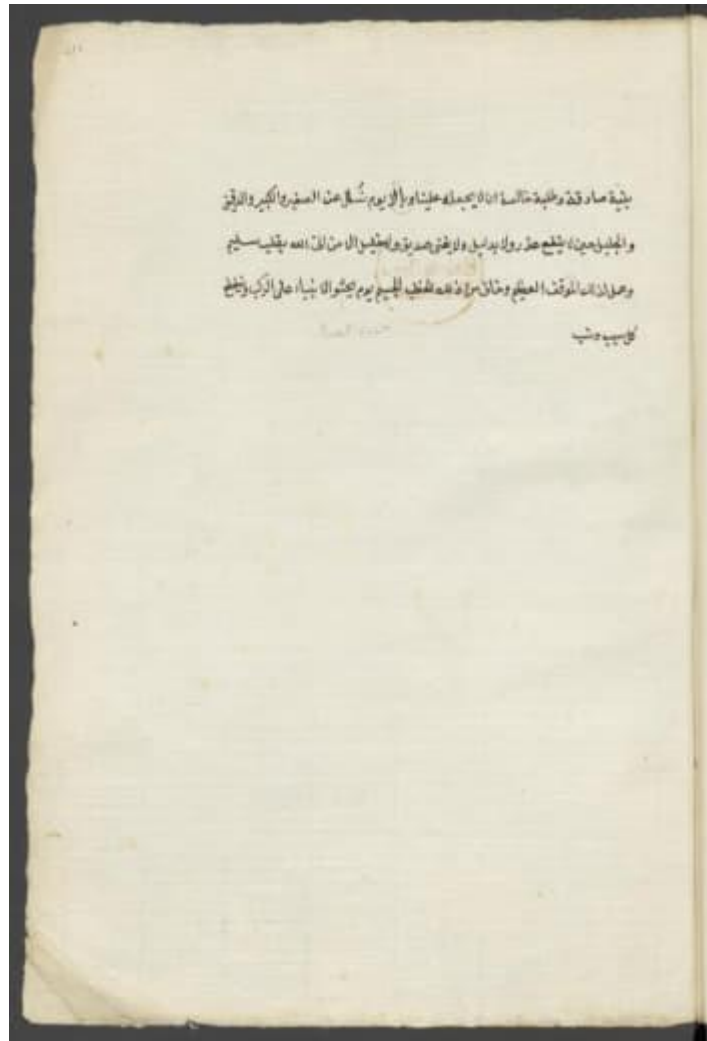 بنية صادقة وطلبة خالصة ان لا يجعله علينا وبالا يوم نُسأل عن الصغير والكبير والدقيق
والجليل حين لا ينفع عذر ولا بدليل ولا يغنى صديق ولا خليل الا من اتى الله بقلب سليم
وعمل لذلك الموقف العظيم وخاف من ذلك الخطب الجسيم يوم يجثو الانبياء على الركب وينقطع
كل سبب ونسب